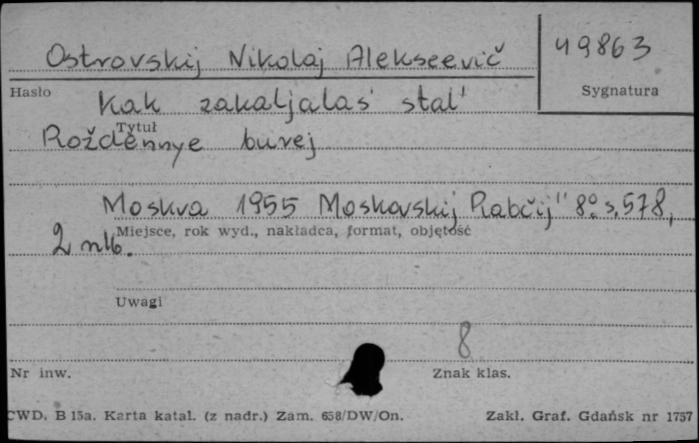 Ostrovskij Nikolaj Alekseevič
49863
Hasło
Sygnatura
Kak zakaljalas' stal'
Tytuł
Roždennye burej
Moskva 1955 Moskovskij Rabčij" 8° s. 578,
Miejsce, rok wyd., nakładca, format, objętość
2 nlb.
Uwagi
8
Nr inw.
Znak klas.
CWD. B 15a. Karta katal. (z nadr.) Zam. 658/DW/On.
Zakł. Graf. Gdańsk nr 1757